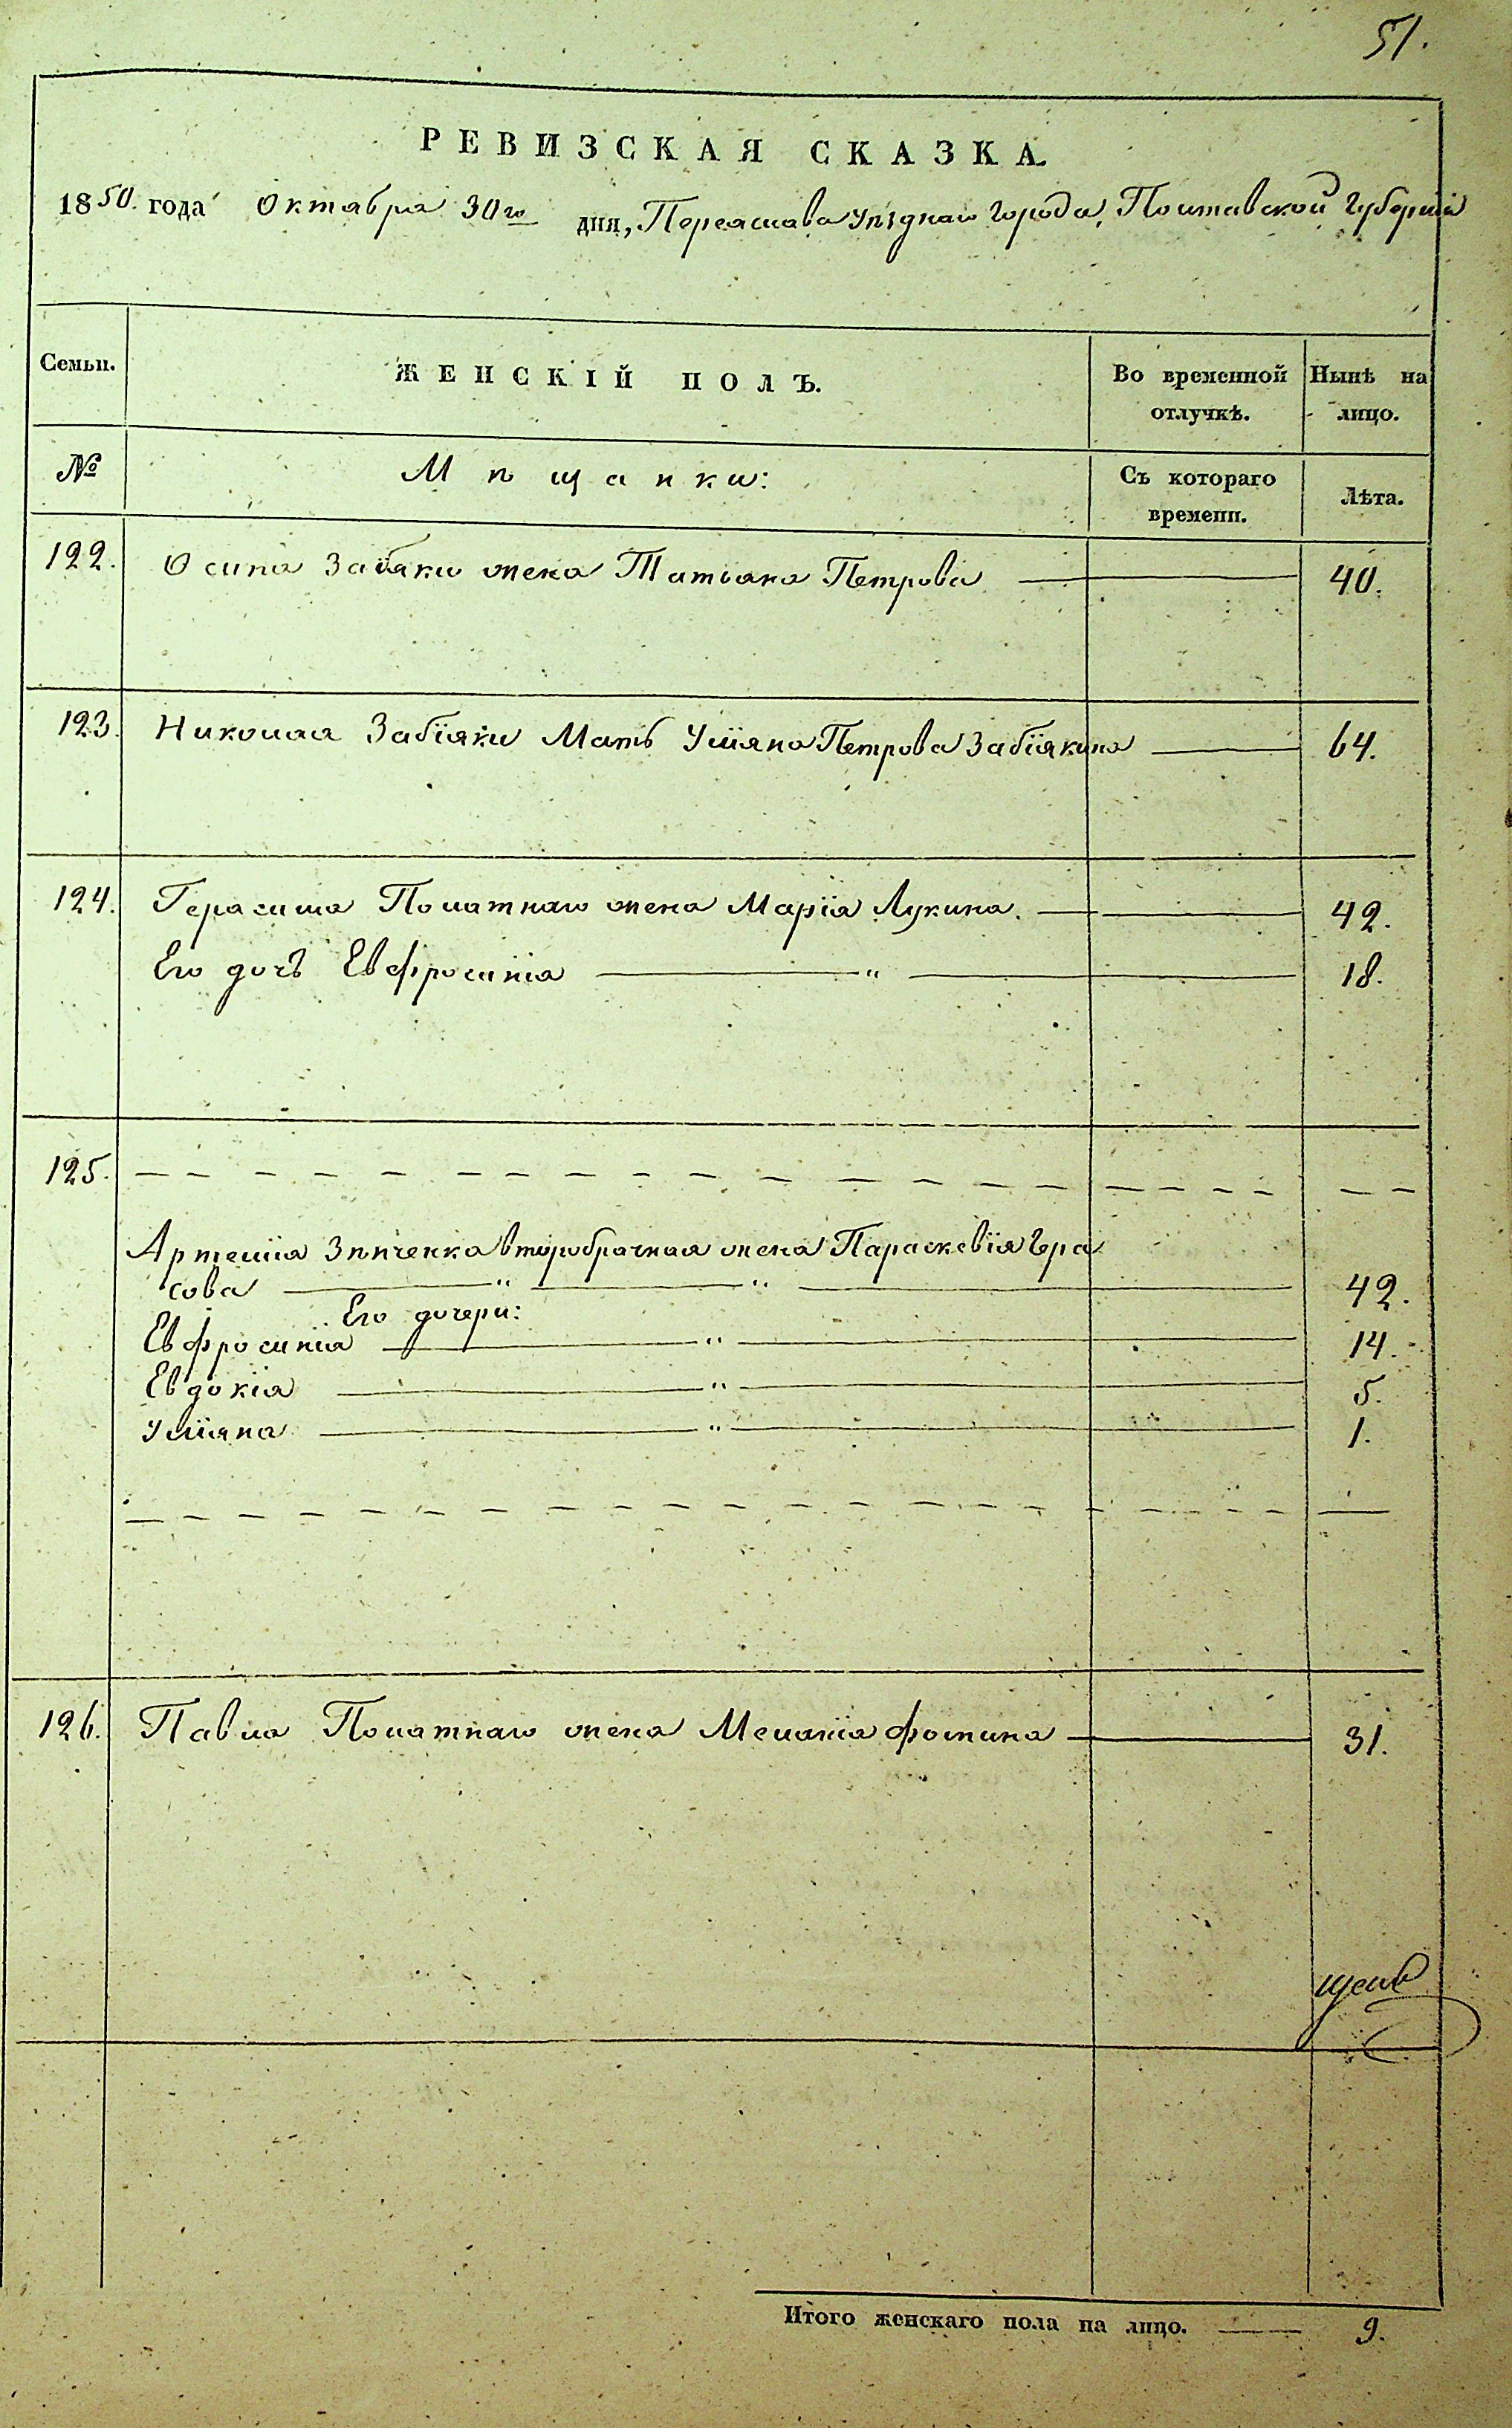 51.
РЕВИЗСКАЯ СКАЗКА.
1850. года Октября 30го дня, Переяслава уѣзднаго города, Полтавской Губерніи
Семьи.
ЖЕНСКІЙ ПОЛЪ.
Во временной отлучкѣ.
Нынѣ на лицо.
№
Мѣщанки:
Съ котораго времени.
Лѣта.
122. Осипа Забіяки жена Татьяна Петрова — 40.
123. Николая Забіяки Мать Уліяна Петрова Забіякина — 64.
124. Герасима Полатнаго жена Марія Лукина. — 42.
Его дочь Евфросинія — " — 18.
125. — — — — — — — — — — — — — — — — — — — —
Артемія Зѣнченка второбрачная жена Параскевія Гера
сова — " — " — 42.
Его дочери:
Евфросинія — " — 14.
Евдокія — " — 5.
Уліяна — " — 1.
— — — — — — — — — — — — — — — — — — — —
126. Павла Полатнаго жена Меланія Фомина — 31.
Итого женскаго пола на лицо. — 9.